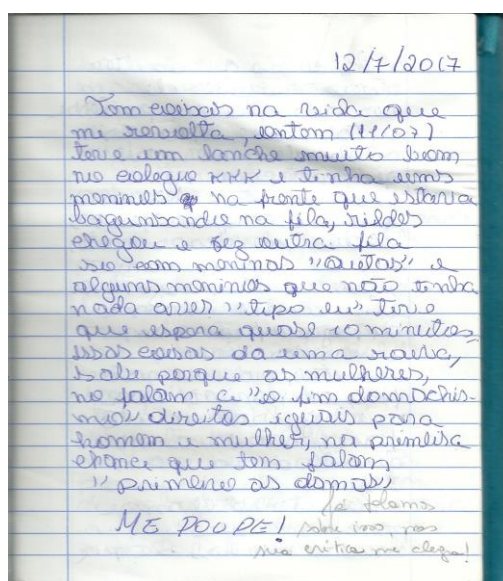 12/7/2017
Tem coisas na vida que
me revolta, ontem (11/07)
teve um lanche muito bom
no colegio KKK e tinha uns
meninos na frente que estava
bagunsando na fila, rildes
chegou e fez outra fila
so com meninas "quetas" e
alguns meninos que não tinha
nada aver "tipo eu" teve
que espera quase 10 minutos,
issas coisas da uma raiva,
sabe porque as mulheres,
no falam a "o fim domachis-
mo" direitos iguais para
homem e mulher, na primeira
chance que tem falam
"primeiro as damas"
ME POUPE!
Já falamos
sobre isso, mas
sua crítica me alegra!